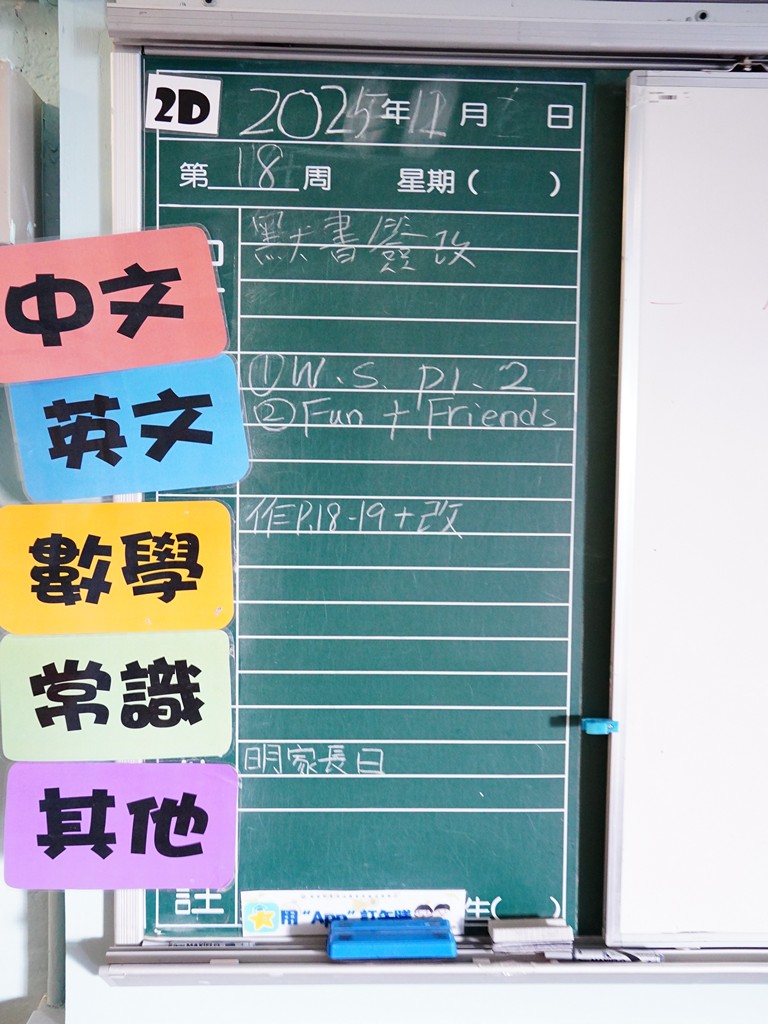 2D
2025年12月 日
第18周 星期( )
默書簽改
中文
①W.S. p1.2
②Fun + Friends
英文
作P.18-19+改
數學
常識
明家長日
其他
註
用"App"訂午膳
生( )